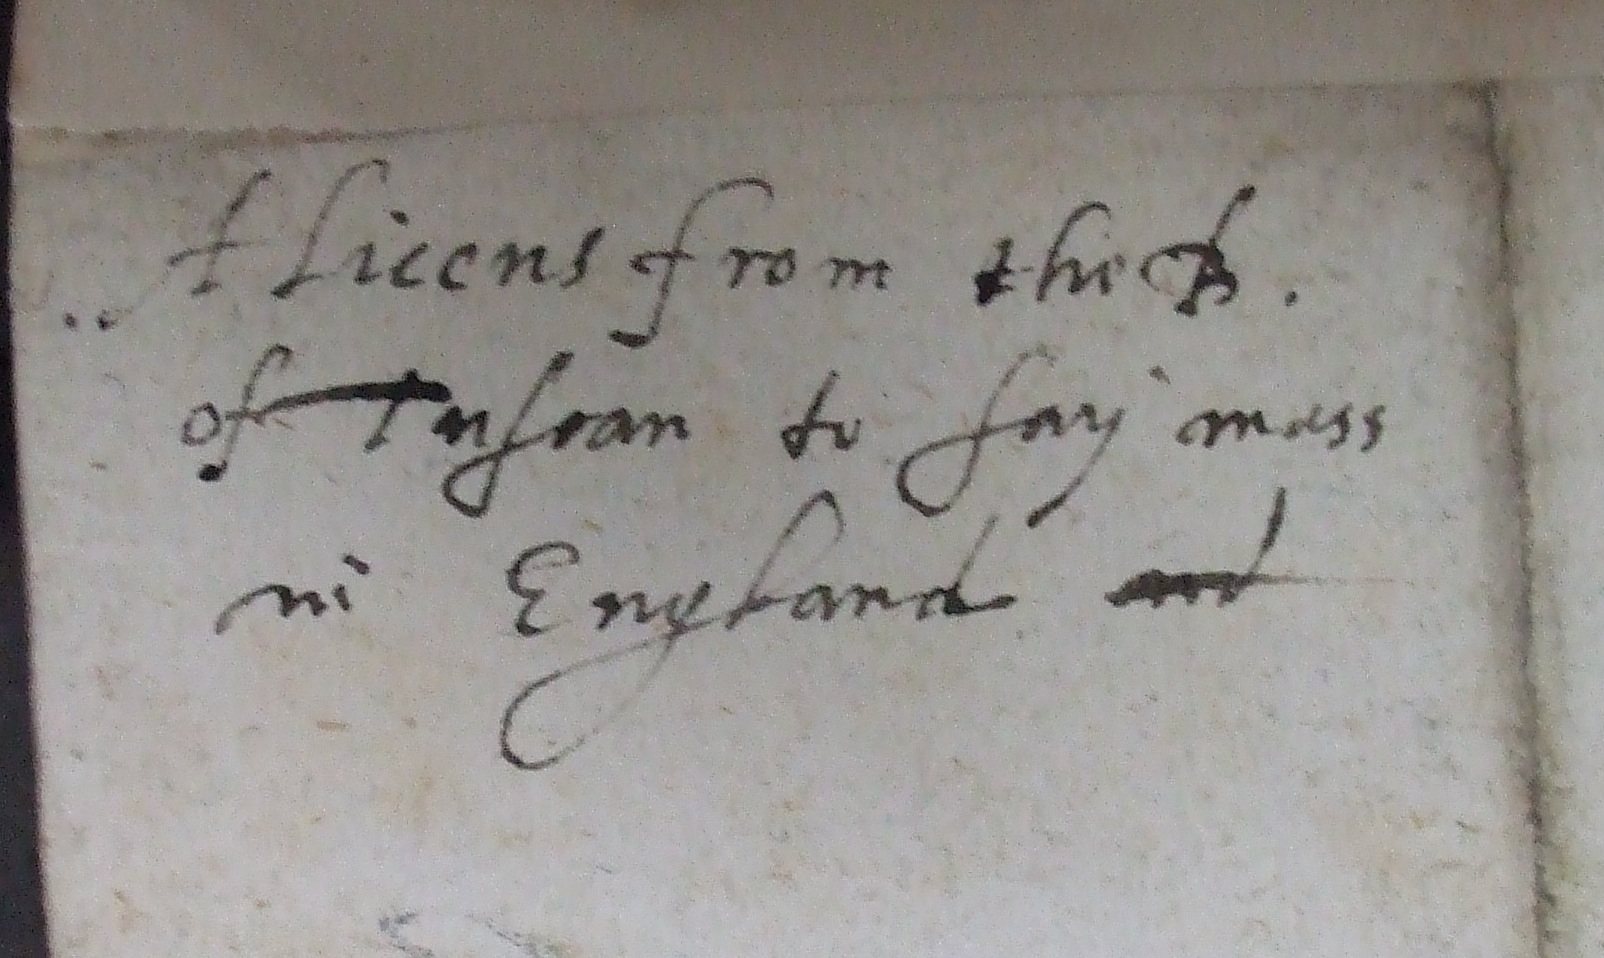 A licens from the B.
of Tusoan to say mass
in England and